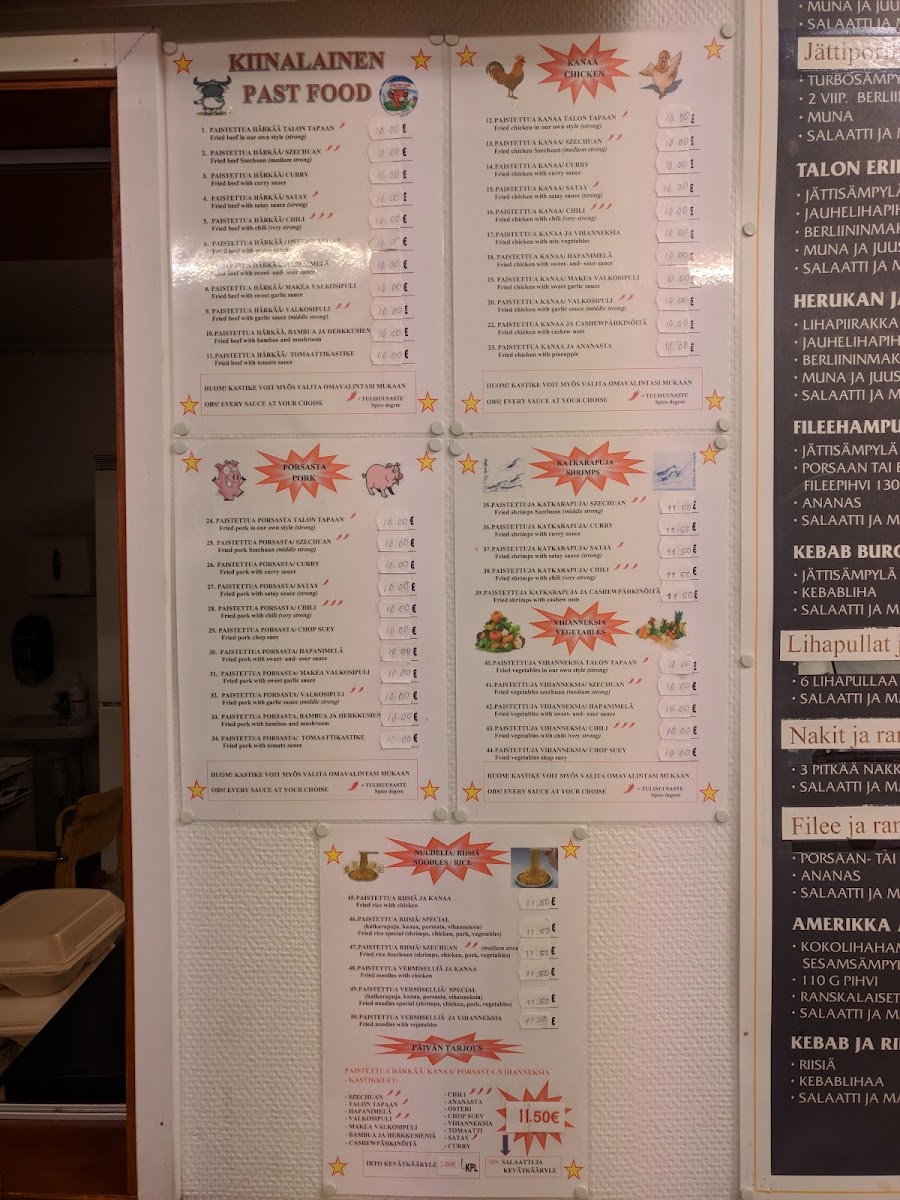 KIINALAINEN
PAST FOOD
1. PAISTETTUA HÄRKÄÄ TALON TAPAAN 10.00 €
Fried beef in our own style (strong)
2. PAISTETTUA HÄRKÄÄ/ SZECHUAN 10.00 €
Fried beef Szechuan (medium strong)
3. PAISTETTUA HÄRKÄÄ/ CURRY 10.00 €
Fried beef with curry sauce
4. PAISTETTUA HÄRKÄÄ/ SATAY 10.00 €
Fried beef with satay sauce (strong)
5. PAISTETTUA HÄRKÄÄ/ CHILI 10.00 €
Fried beef with chili (very strong)
6. PAISTETTUA HÄRKÄÄ 10.00 €
Fried beef with
PAISTETTUA HÄRKÄÄ/ HAPANIMELÄ 10.00 €
Fried beef with sweet- and- sour sauce
8. PAISTETTUA HÄRKÄÄ/ MAKEA VALKOSIPULI 10.00 €
Fried beef with sweet garlic sauce
9. PAISTETTUA HÄRKÄÄ/ VALKOSIPULI 10.00 €
Fried beef with garlic sauce (middle strong)
10. PAISTETTUA HÄRKÄÄ, BAMBUA JA HERKKUSIEN 10.00 €
Fried beef with bamboo and mushroom
11. PAISTETTUA HÄRKÄÄ/ TOMAATTIKASTIKE 10.00 €
Fried beef with tomato sauce
HUOM! KASTIKE VOIT MYÖS VALITA OMAVALINTASI MUKAAN
OBS! EVERY SAUCE AT YOUR CHOISE = TULISUUSASTE
Spice degree
KANAA
CHICKEN
12. PAISTETTUA KANAA TALON TAPAAN 10.00 £
Fried chicken in our own style (strong)
13. PAISTETTUA KANAA/ SZECHUAN 10.00 £
Fried chicken Szechuan (medium strong)
14. PAISTETTUA KANAA/ CURRY 10.00 £
Fried chicken with curry sauce
15. PAISTETTUA KANAA/ SATAY 10.00 £
Fried chicken with satay sauce (strong)
16. PAISTETTUA KANAA/ CHILI 10.00 £
Fried chicken with chili (very strong)
17. PAISTETTUA KANAA JA VIHANNEKSIA 10.00 £
Fried chicken with mix vegetables
18. PAISTETTUA KANAA/ HAPANIMELÄ 10.00 £
Fried chicken with sweet- and- sour sauce
19. PAISTETTUA KANAA/ MAKEA VALKOSIPULI 10.00 £
Fried chicken with sweet garlic sauce
20. PAISTETTUA KANAA/ VALKOSIPULI 10.00 £
Fried chicken with garlic sauce (middle strong)
22. PAISTETTUA KANAA JA CASHEWPÄHKINÖITÄ 10.00 £
Fried chicken with cashew nuts
23. PAISTETTUA KANAA JA ANANASTA 10.00 £
Fried chicken with pineapple
HUOM! KASTIKE VOIT MYÖS VALITA OMAVALINTASI MUKAAN
OBS! EVERY SAUCE AT YOUR CHOISE = TULISUUSASTE
Spice degree
PORSASTA
PORK
24. PAISTETTUA PORSASTA TALON TAPAAN 10.00 €
Fried pork in our own style (strong)
25. PAISTETTUA PORSASTA/ SZECHUAN 10.00 €
Fried pork Szechuan (middle strong)
26. PAISTETTUA PORSASTA/ CURRY 10.00 €
Fried pork with curry sauce
27. PAISTETTUA PORSASTA/ SATAY 10.00 €
Fried pork with satay sauce (strong)
28. PAISTETTUA PORSASTA/ CHILI 10.00 €
Fried pork with chili (very strong)
29. PAISTETTUA PORSASTA/ CHOP SUEY 10.00 €
Fried pork chop suey
30. PAISTETTUA PORSASTA/ HAPANIMELÄ 10.00 €
Fried pork with sweet- and- sour sauce
31. PAISTETTUA PORSASTA/ MAKEA VALKOSIPULI 10.00 €
Fried pork with sweet garlic sauce
32. PAISTETTUA PORSASTA/ VALKOSIPULI 10.00 €
Fried pork with garlic sauce (middle strong)
33. PAISTETTUA PORSASTA, BAMBUA JA HERKKUSIEN 10.00 €
Fried pork with bamboo and mushroom
34. PAISTETTUA PORSASTA/ TOMAATTIKASTIKE 10.00 €
Fried pork with tomato sauce
HUOM! KASTIKE VOIT MYÖS VALITA OMAVALINTASI MUKAAN
OBS! EVERY SAUCE AT YOUR CHOISE = TULISUUSASTE
Spice degree
KATKARAPUJA
SHRIMPS
35. PAISTETTUJA KATKARAPUJA/ SZECHUAN 11.50 €
Fried shrimps Szechuan (middle strong)
36. PAISTETTUJA KATKARAPUJA/ CURRY 11.50 €
Fried shrimps with curry sauce
37. PAISTETTUJA KATKARAPUJA/ SATAY 11.50 €
Fried shrimps with satay sauce (strong)
38. PAISTETTUJA KATKARAPUJA/ CHILI 11.50 €
Fried shrimps with chili (very strong)
39. PAISTETTUJA KATKARAPUJA JA CASHEWPÄHKINÖITÄ 11.50 €
Fried shrimps with cashew nuts
VIHANNEKSIA
VEGETABLES
40. PAISTETTUJA VIHANNEKSIA TALON TAPAAN 10.00 €
Fried vegetables in our own style (strong)
41. PAISTETTUJA VIHANNEKSIA/ SZECHUAN 10.00 €
Fried vegetables szechuan (medium strong)
42. PAISTETTUJA VIHANNEKSIA/ HAPANIMELÄ 10.00 €
Fried vegetables with sweet- and- sour sauce
43. PAISTETTUJA VIHANNEKSIA/ CHILI 10.00 €
Fried vegetables with chili (very strong)
44. PAISTETTUJA VIHANNEKSIA/ CHOP SUEY 10.00 €
Fried vegetables shop suey
HUOM! KASTIKE VOIT MYÖS VALITA OMAVALINTASI MUKAAN
OBS! EVERY SAUCE AT YOUR CHOISE = TULISUUSASTE
Spice degree
NUUDELIA/ RIISIÄ
NOODLES / RICE
45. PAISTETTUA RIISIÄ JA KANAA 11,50 €
Fried rice with chicken
46. PAISTETTUA RIISIÄ/ SPECIAL
(katkarapuja, kanaa, porsasta, vihanneksia) 11.50 €
Fried rice special (shrimps, chicken, pork, vegetables)
47. PAISTETTUA RIISIÄ/ SZECHUAN (medium strong 11.50 €
Fried rice Szechuan (shrimps, chicken, pork, vegetables)
48. PAISTETTUA VERMISELLIÄ JA KANAA 11,50 €
Fried noodles with chicken
49. PAISTETTUA VERMISELLIÄ/ SPECIAL
(katkarapuja, kanaa, porsasta, vihanneksia) 11,50 €
Fried noodles special (shrimps, chicken, pork, vegetables)
50. PAISTETTUA VERMISELLIÄ JA VIHANNEKSIA 11.50 €
Fried noodles with vegetables
PÄIVÄN TARJOUS
PAISTETTUA HÄRKÄÄ/ KANAA/ PORSASTA /VIHANNEKSIA
- KASTIKKEET:
- SZECHUAN
- TALON TAPAAN
- HAPANIMELÄ
- VALKOSIPULI
- MAKEA VALKOSIPULI
- BAMBUA JA HERKKUSIENIÄ
- CASHEWPÄHKINÖITÄ
- CHILI
- ANANASTA
- OSTERI
- CHOP SUEY
- VIHANNEKSIA
- TOMAATTI
- SATAY
- CURRY
11.50€
IRTO KEVÄTKÄÄRYLE 2.00€ /KPL
SIS. SALAATTI JA
KEVÄTKÄÄRYLE
• MUNA JA JUU
• SALAATTI JA M
Jättipor
TURBOSÄMPY
• 2 VIIP. BERLII
• MUNA
• SALAATTI JA M
TALON ERI
• JÄTTISÄMPYLÄ
• JAUHELIHAPIH
• BERLIININMAK
• MUNA JA JUUS
• SALAATTI JA M
HERUKAN JA
• LIHAPIIRAKKA
• JAUHELIHAPIH
• BERLIININMAK
• MUNA JA JUUS
• SALAATTI JA M
FILEEHAMPU
• JÄTTISÄMPYLÄ
• PORSAAN TAI B
FILEEPIHVI 130
• ANANAS
• SALAATTI JA M
KEBAB BURG
• JÄTTISÄMPYLÄ
• KEBABLIHA
• SALAATTI JA M
Lihapullat j
• 6 LIHAPULLAA
• SALAATTI JA MA
Nakit ja ran
• 3 PITKÄÄ NAKK
• SALAATTI JA MA
Filee ja ran
• PORSAAN- TAI
• ANANAS
• SALAATTI JA M
AMERIKKA A
• KOKOLIHAHAM
SESAMSÄMPYI
• 110 G PIHVI
• RANSKALAISET
• SALAATTI JA MA
KEBAB JA RII
• RIISIÄ
• KEBABLIHAA
• SALAATTI JA MA